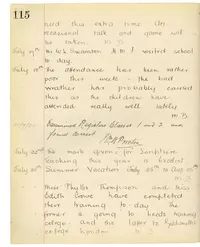 115
and this extra time on
recreational talk and game will
be taken. M.B.
July 7th Mr W. Swanston H.M.I. visited school
to-day.
July 10th The attendance has been rather
poor this week - the bad
weather has probably caused
this as the children have
attended really well lately
M.B.
Examined Registers Classes 1 and 2 and
found correct
July 20th The mark given for Scripture
teaching this year is Excellent
Summer Vacation July 25th to Aug 25th
M.B.
Miss Phyllis Thompson and Miss
Edith Crowe have completed
their training to-day. The
former is going to Leeds training
college and the latter to
college London